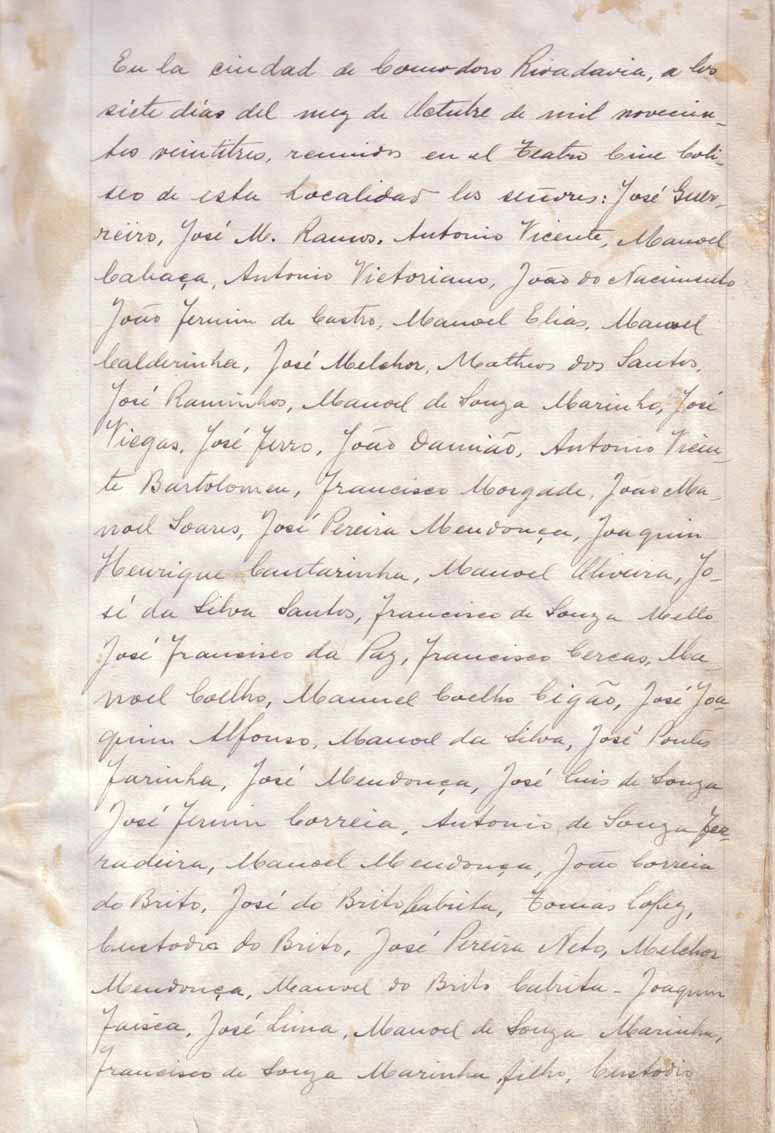 En la ciudad de Comodoro Rivadavia, a los
siete dias del mez de Octubre de mil novecien-
tos veintitres, reunidos en el Teatro Cine Coli-
seo de esta Localidad los señores: José Guer-
reiro, José M. Ramos, Antonio Vicente, Manoel
Cabaça, Antonio Victoriano, João do Nacimento
João Fermin de Castro, Manoel Elias, Manoel
Calderinha, José Melchor, Matheos dos Santos,
José Raminhos, Manoel de Souza Marinho, José
Viegas, José Ferro, João Damião, Antonio Vicen-
te Bartolomeu, Francisco Morgade, João Ma-
noel Soares, José Pereira Mendonça, Joaquin
Henrique Cantarinha, Manoel Oliveira, Jo-
sé da Silva Santos, Francisco de Souza Mello
José Francisco da Paz, Francisco Cercas, Ma-
noel Coelho, Manuel Coelho Cigão, José Joa-
quin Alfonso, Manoel da Silva, José Pontes
Farinha, José Mendonça, José Luis de Souza
José Fermin Correia, Antonio de Souza Fer-
radeira, Manoel Mendonça, João Correia
do Brito, José do Brito Cabrita, Tomás Lopez,
Custodio do Brito, José Pereira Neto, Melchor
Mendonça, Manoel do Brito Cabrita - Joaquin
Faisca, José Lima, Manoel de Souza Marinho,
Francisco de Souza Marinha, filho, Custodio